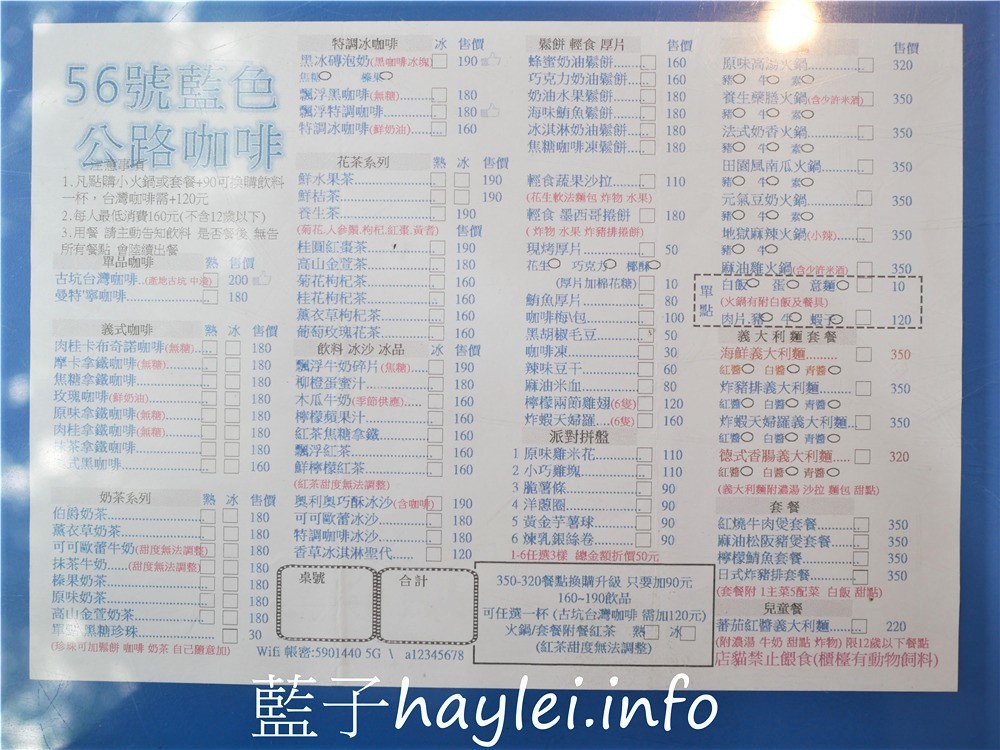 56號藍色
公路咖啡
注意事項
1.凡點購小火鍋或套餐+90可換購飲料
一杯，台灣咖啡需+120元
2.每人最低消費160元(不含12歲以下)
3.用餐 請主動告知飲料 是否餐後 無告
所有餐點 會陸續出餐
單品咖啡 熱 售價
古坑台灣咖啡..(產地古坑 中淺) 200
曼特寧咖啡 180
義式咖啡 熱 冰 售價
肉桂卡布奇諾咖啡(無糖) 180
摩卡拿鐵咖啡(無糖) 180
焦糖拿鐵咖啡 180
玫瑰咖啡(鮮奶油) 180
原味拿鐵咖啡(無糖) 160
肉桂拿鐵咖啡(無糖) 180
抹茶拿鐵咖啡 180
式黑咖啡 160
奶茶系列 熱 冰 售價
伯爵奶茶 180
薰衣草奶茶 180
可可歐蕾牛奶(甜度無法調整) 180
抹茶牛奶(甜度無法調整) 180
榛果奶茶 180
原味奶茶 180
高山金萱奶茶 180
單點 黑糖珍珠 30
(珍珠可加鬆餅 咖啡 奶茶 自己隨意加)
特調冰咖啡 冰 售價
黑冰磚泡奶(黑咖啡冰塊) 190
焦糖 榛果
飄浮黑咖啡(無糖) 180
飄浮特調咖啡 180
特調冰咖啡(鮮奶油) 160
花茶系列 熱 冰 售價
鮮水果茶 190
鮮桔茶 190
養生茶 190
(菊花,人參鬚,枸杞,紅棗,黃耆) 售價
桂圓紅棗茶 190
高山金萱茶 180
菊花枸杞茶 160
桂花枸杞茶 160
薰衣草枸杞茶 160
葡萄玫瑰花茶 180
飲料 冰沙 冰品 冰 售價
飄浮牛奶碎片(焦糖) 190
柳橙蛋蜜汁 180
木瓜牛奶(季節供應) 160
檸檬蘋果汁 160
紅茶焦糖拿鐵 160
飄浮紅茶 160
鮮檸檬紅茶 160
(紅茶甜度無法調整)
奧利奧巧酥冰沙(含咖啡) 190
可可歐蕾冰沙 180
特調咖啡冰沙 180
香草冰淇淋聖代 120
桌號
合計
Wifi 帳密:5901440 5G \ a12345678
鬆餅 輕食 厚片 售價
蜂蜜奶油鬆餅 160
巧克力奶油鬆餅 160
奶油水果鬆餅 180
海味鮪魚鬆餅 180
冰淇淋奶油鬆餅 180
焦糖咖啡凍鬆餅 180
輕食蔬果沙拉 110
(花生軟法麵包 炸物 水果)
輕食 墨西哥捲餅 180
(炸物 水果 炸豬排捲餅)
現烤厚片 50
花生 巧克力 椰酥
(厚片加棉花糖) 10
鮪魚厚片 80
咖啡梅\包 100
黑胡椒毛豆 50
咖啡凍 30
辣味豆干 60
麻油米血 80
檸檬兩節雞翅(6隻) 120
炸蝦天婦羅(6隻) 160
派對拼盤
1 原味雞米花 110
2 小巧雞塊 110
3 脆薯條 90
4 洋蔥圈 90
5 黃金芋薯球 90
6 煉乳銀絲卷 90
1-6任選3樣 總金額折價50元
350-320餐點換購升級 只要加90元
160~190飲品
可任選一杯 (古坑台灣咖啡 需加120元)
火鍋/套餐附餐紅茶 熱 冰
(紅茶甜度無法調整)
售價
原味高湯火鍋 320
豬 牛 素
養生藥膳火鍋(含少許米酒) 350
豬 牛 素
法式奶香火鍋 350
豬 牛 素
田園風南瓜火鍋 350
豬 牛 素
元氣豆奶火鍋 350
豬 牛 素
地獄麻辣火鍋(小辣) 350
豬 牛
麻油雞火鍋(含少許米酒) 350
單點
白飯 蛋 意麵 10
(火鍋有附白飯及餐具)
肉片 豬 牛 蝦子 120
義大利麵套餐
海鮮義大利麵 350
紅醬 白醬 青醬
炸豬排義大利麵 350
紅醬 白醬 青醬
炸蝦天婦羅義大利麵 350
紅醬 白醬 青醬
德式香腸義大利麵 320
紅醬 白醬 青醬
(義大利麵附濃湯 沙拉 麵包 甜點)
套餐
紅燒牛肉煲套餐 350
麻油松阪豬煲套餐 350
檸檬鯛魚套餐 350
日式炸豬排套餐 350
(套餐附 1主菜5配菜 白飯 甜點)
兒童餐
蕃茄紅醬義大利麵 220
(附濃湯 牛奶 甜點 炸物) 限12歲以下餐點
店貓禁止餵食(櫃檯有動物飼料)
藍子haylei.info